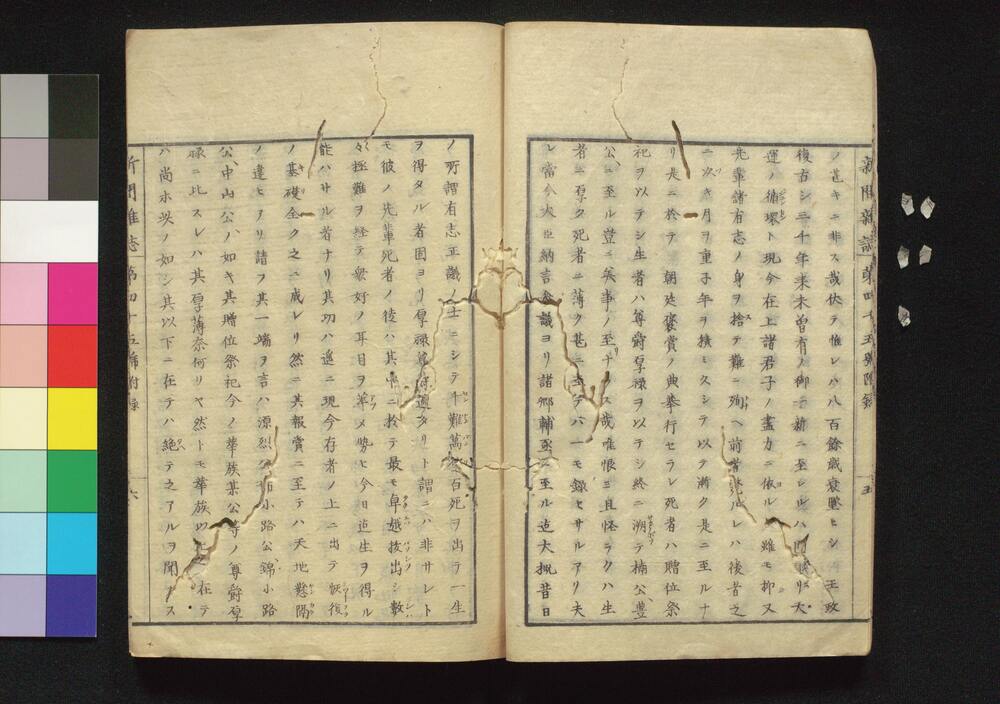 新聞雑誌 第四十五號附録 五
ノ甚キニ非ス哉伏テ惟レハ八百餘歳衰墜セシ 王政
復古シ三千年来未曽有ノ御一新ニ至レルハ リ天
運ノ循環ト現今在上諸君子ノ盡力ニ依ルト雖モ抑又
先輩諸有志ノ身ヲ捨テ難ニ殉ヘ前者 ルレハ後者之
ニ次キ月ヲ重子年ヲ積ミ久シテ以テ漸ク是ニ至ルナ
リ是ニ於テ 朝廷褒賞ノ典挙行セラレ死者ハ贈位祭
祀ヲ以テシ生者ハ尊爵厚禄ヲ以テシ終ニ溯テ楠公、豊
公、ニ至ル豈ニ美事ノ至ナラスヤ哉唯恨ミ且怪ラクハ生
者ニ厚ク死者ニ薄ク甚ニ至テハ一モ録セサルアリ夫
レ當今大臣納言参議ヨリ諸卿輔丞ニ至ル迠大概昔日
ノ所謂有志正議ノ士ニシテ千難萬 百死ヲ出テ一生
ヲ得タル者固ヨリ厚禄尊 適タリト謂ニハ非サレト
モ彼ノ先輩死者ノ徒ハ其中ニ於テ最モ卓越抜出シ数
々極難ヲ経テ衆好ノ耳目ヲ革メ勢ヒ今日迠生ヲ得ル
能ハサル者ナリ其功ハ遥ニ現今存者ノ上ニ出テ恢復
ノ基礎全ク之ニ成レリ然ニ其報賞ニ至テハ天地懸隔
ノ違ヒアリ請フ其一端ヲ言ハ源烈公姉小路公錦小路
公、中山公、ノ如キ其贈位祭祀今ノ華族某公等ノ尊爵厚
禄ニ比スレハ其厚薄奈何リヤ然トモ華族以上ニ在テ
ハ尚未此ノ如シ其以下ニ在テハ絶テ之アルヲ聞カス
新聞雑誌 第四十五號附録 六